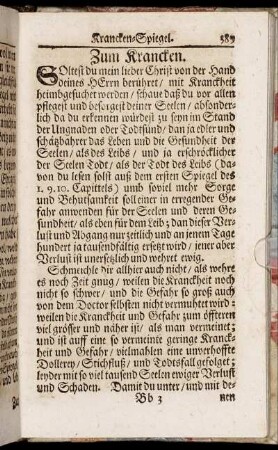 Krancken-Spiegel. 389
Zum Krancken.
SOltest du mein lieder Christ von der Hand
deines HErrn berühret / mit Kranckheit
heimbgesuchet werden / schaue daß du vor allen
pflegest und besorgest deiner Seelen / absonder-
lich da du erkennen würdest zu seyn im Stand
der Ungnaden oder Todtsünd / dan je edler und
schätzbahrer das Leben und die Gesundheit der
Seelen / als des Leibs / und ja erschröcklicher
der Seelen Todt / als der Todt des Leibs (da-
von du lesen solst auß dem ersten Spiegel des
1. 9. 10. Capittels) umb soviel mehr Sorge
und Behutsamkeit soll einer in erregender Ge-
fahr anwenden für der Seelen und deren Ge-
sundheit / als eben für dem Leib; dan dieser Ver-
lust und Abgang nur zeitlich und an jenen Tage
hundert ja tausendfältig ersetzt wird / jener aber
Verlust ist unersetzlich und wehret ewig.
Schmeichle dir allhier auch nicht / als wehre
es noch Zeit gnug / weilen die Kranckheit noch
nicht so schwer / und die Gefahr so groß auch
von dem Doctor selbsten nicht vermutet wird:
weilen die Kranckheit und Gefahr zum öffteren
viel grösser und näher ist / als man vermeinet;
und ist auff eine so vermeinte geringe Kranck-
heit und Gefahr / vielmahlen eine unverhoffte
Dollerey / Stichfluß / und Todtsfall gefolget;
leyder mit so viel tausend Seelen ewiger Verlust
und Schaden. Damit du unter / und mit de-
Bb 3 nen